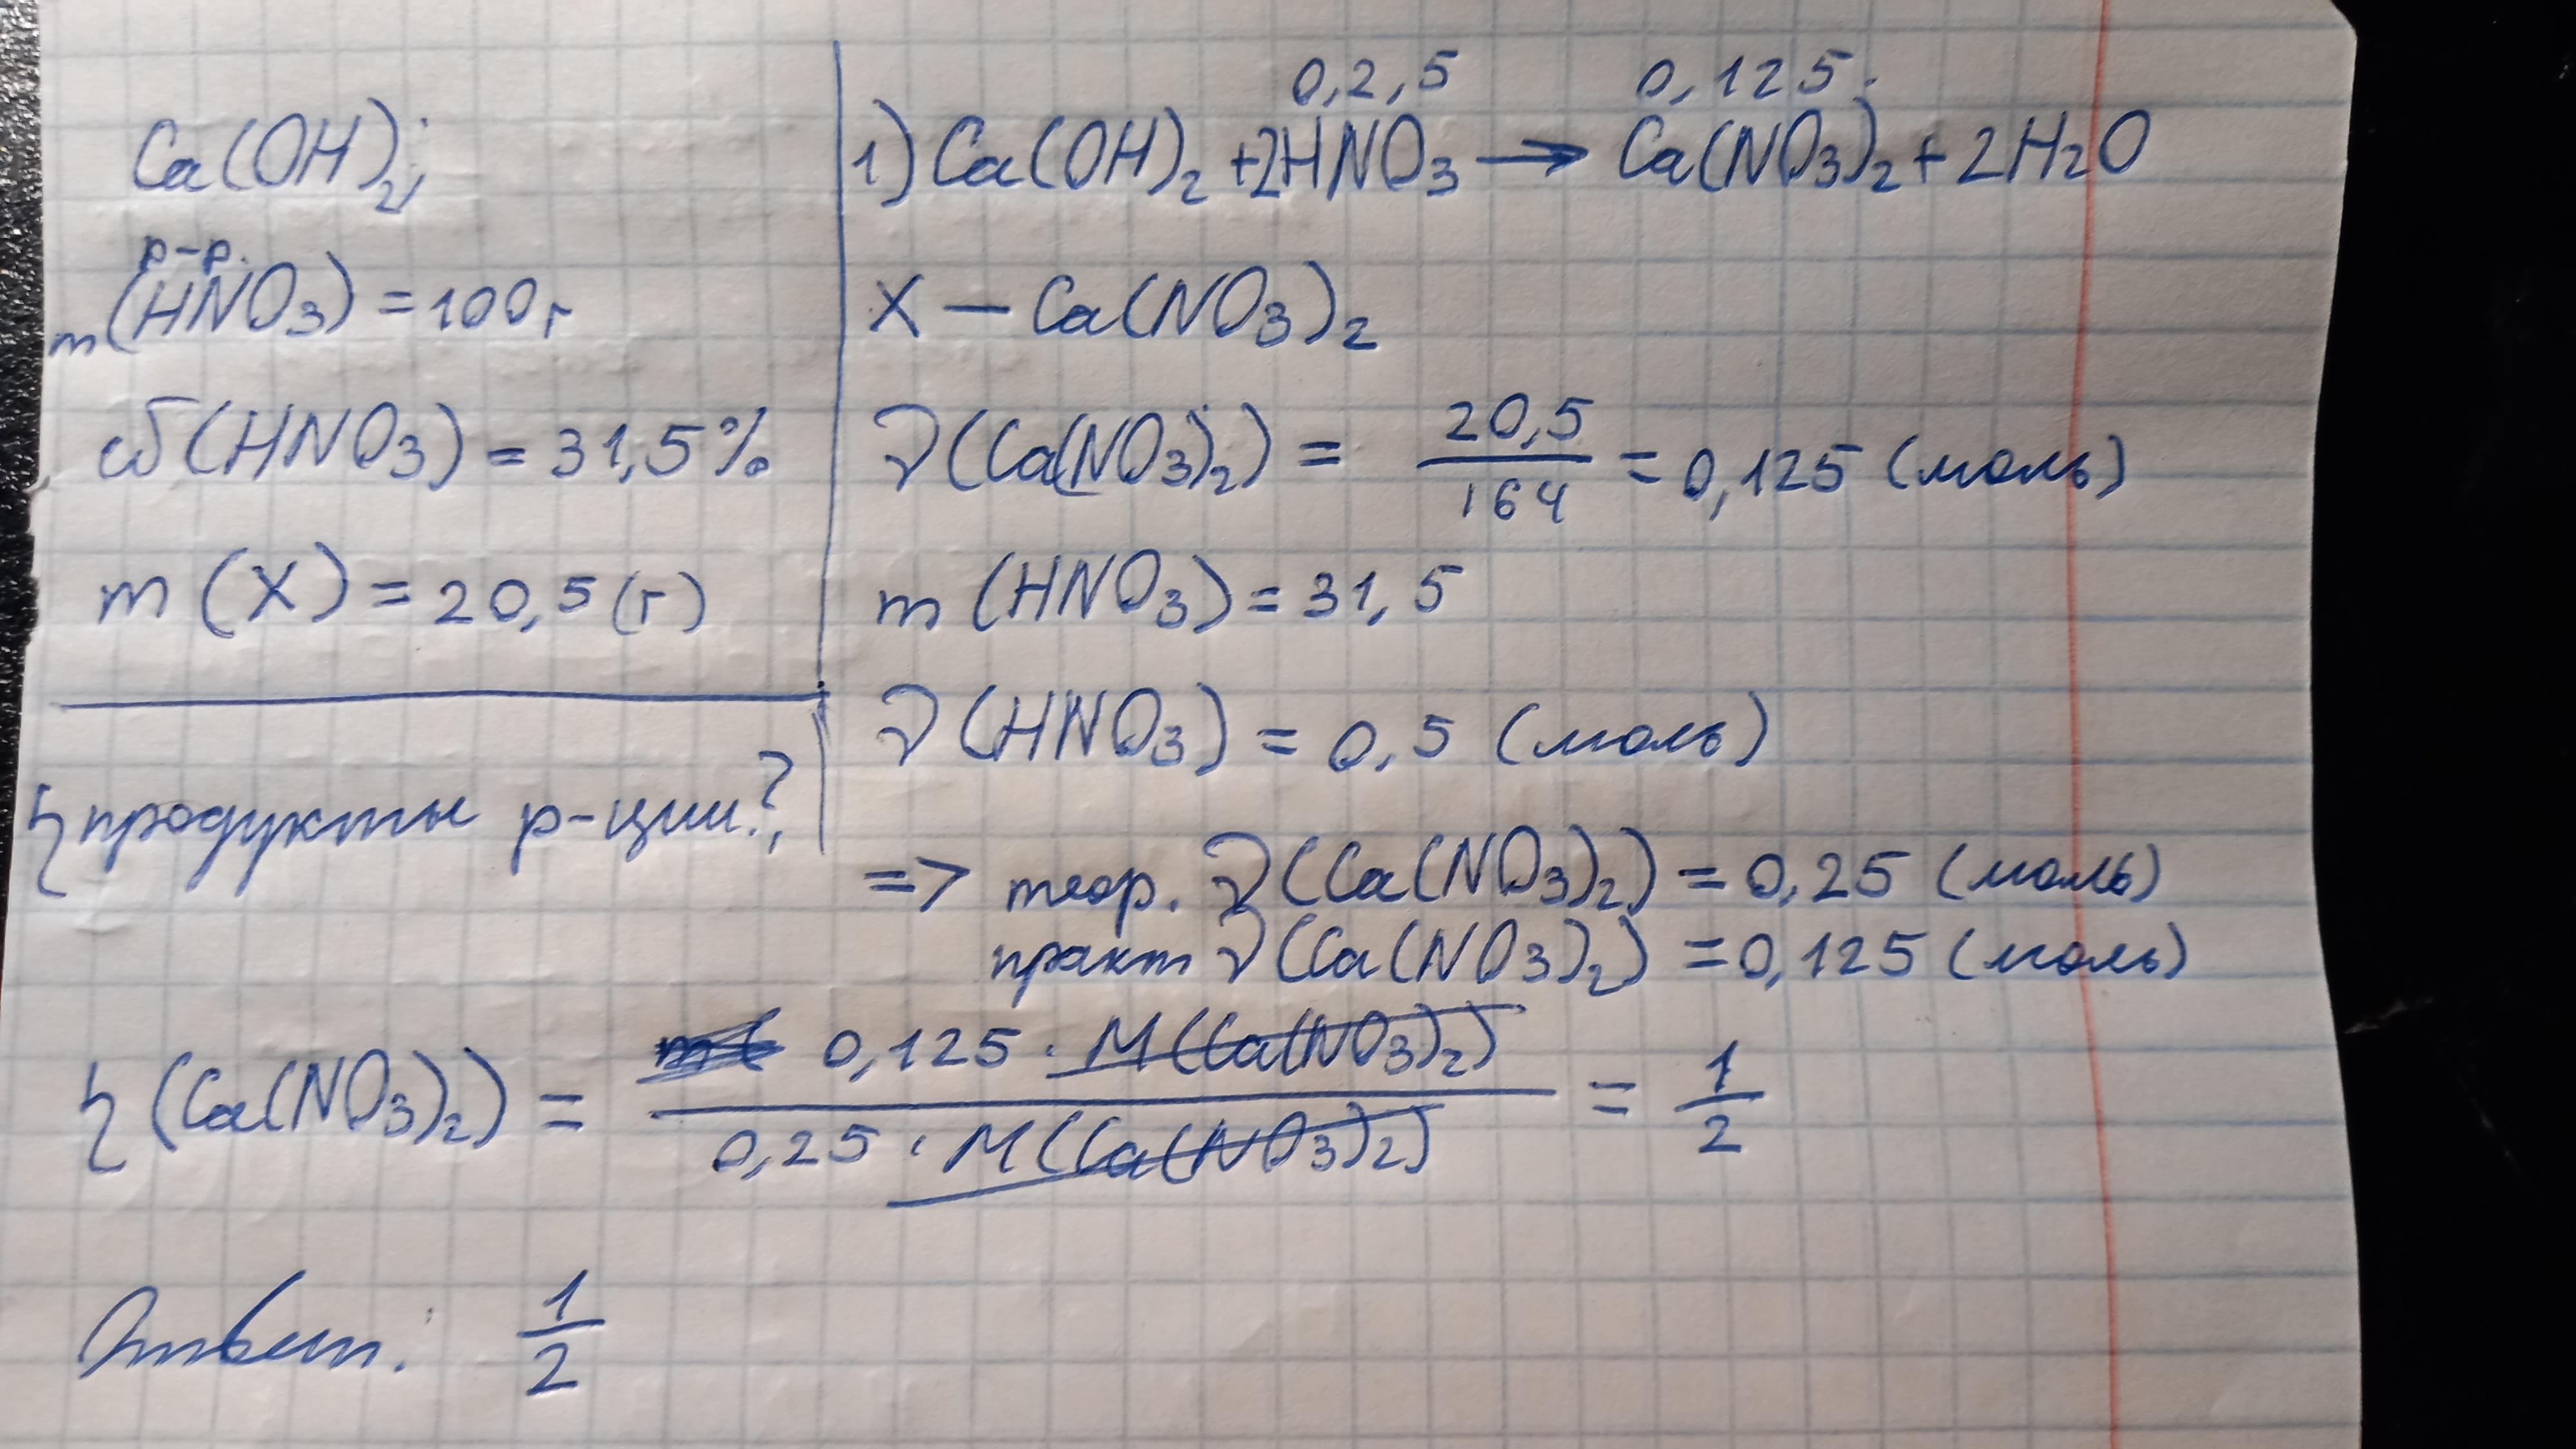 Ca(OH)₂;
р-р.
m(HNO₃) = 100г
ω(HNO₃) = 31,5%
m(X) = 20,5(г)
η продукты р-ции?
0,2,5 0,125.
1) Ca(OH)₂ + 2HNO₃ → Ca(NO₃)₂ + 2H₂O
X — Ca(NO₃)₂
ν(Ca(NO₃)₂) = 20,5/164 = 0,125 (моль)
m(HNO₃) = 31,5
ν(HNO₃) = 0,5 (моль)
=> теор. ν(Ca(NO₃)₂) = 0,25 (моль)
практ ν(Ca(NO₃)₂) = 0,125 (моль)
η(Ca(NO₃)₂) = 0,125 · M(Ca(NO₃)₂) / 0,25 · M(Ca(NO₃)₂) = 1/2
Ответ: 1/2